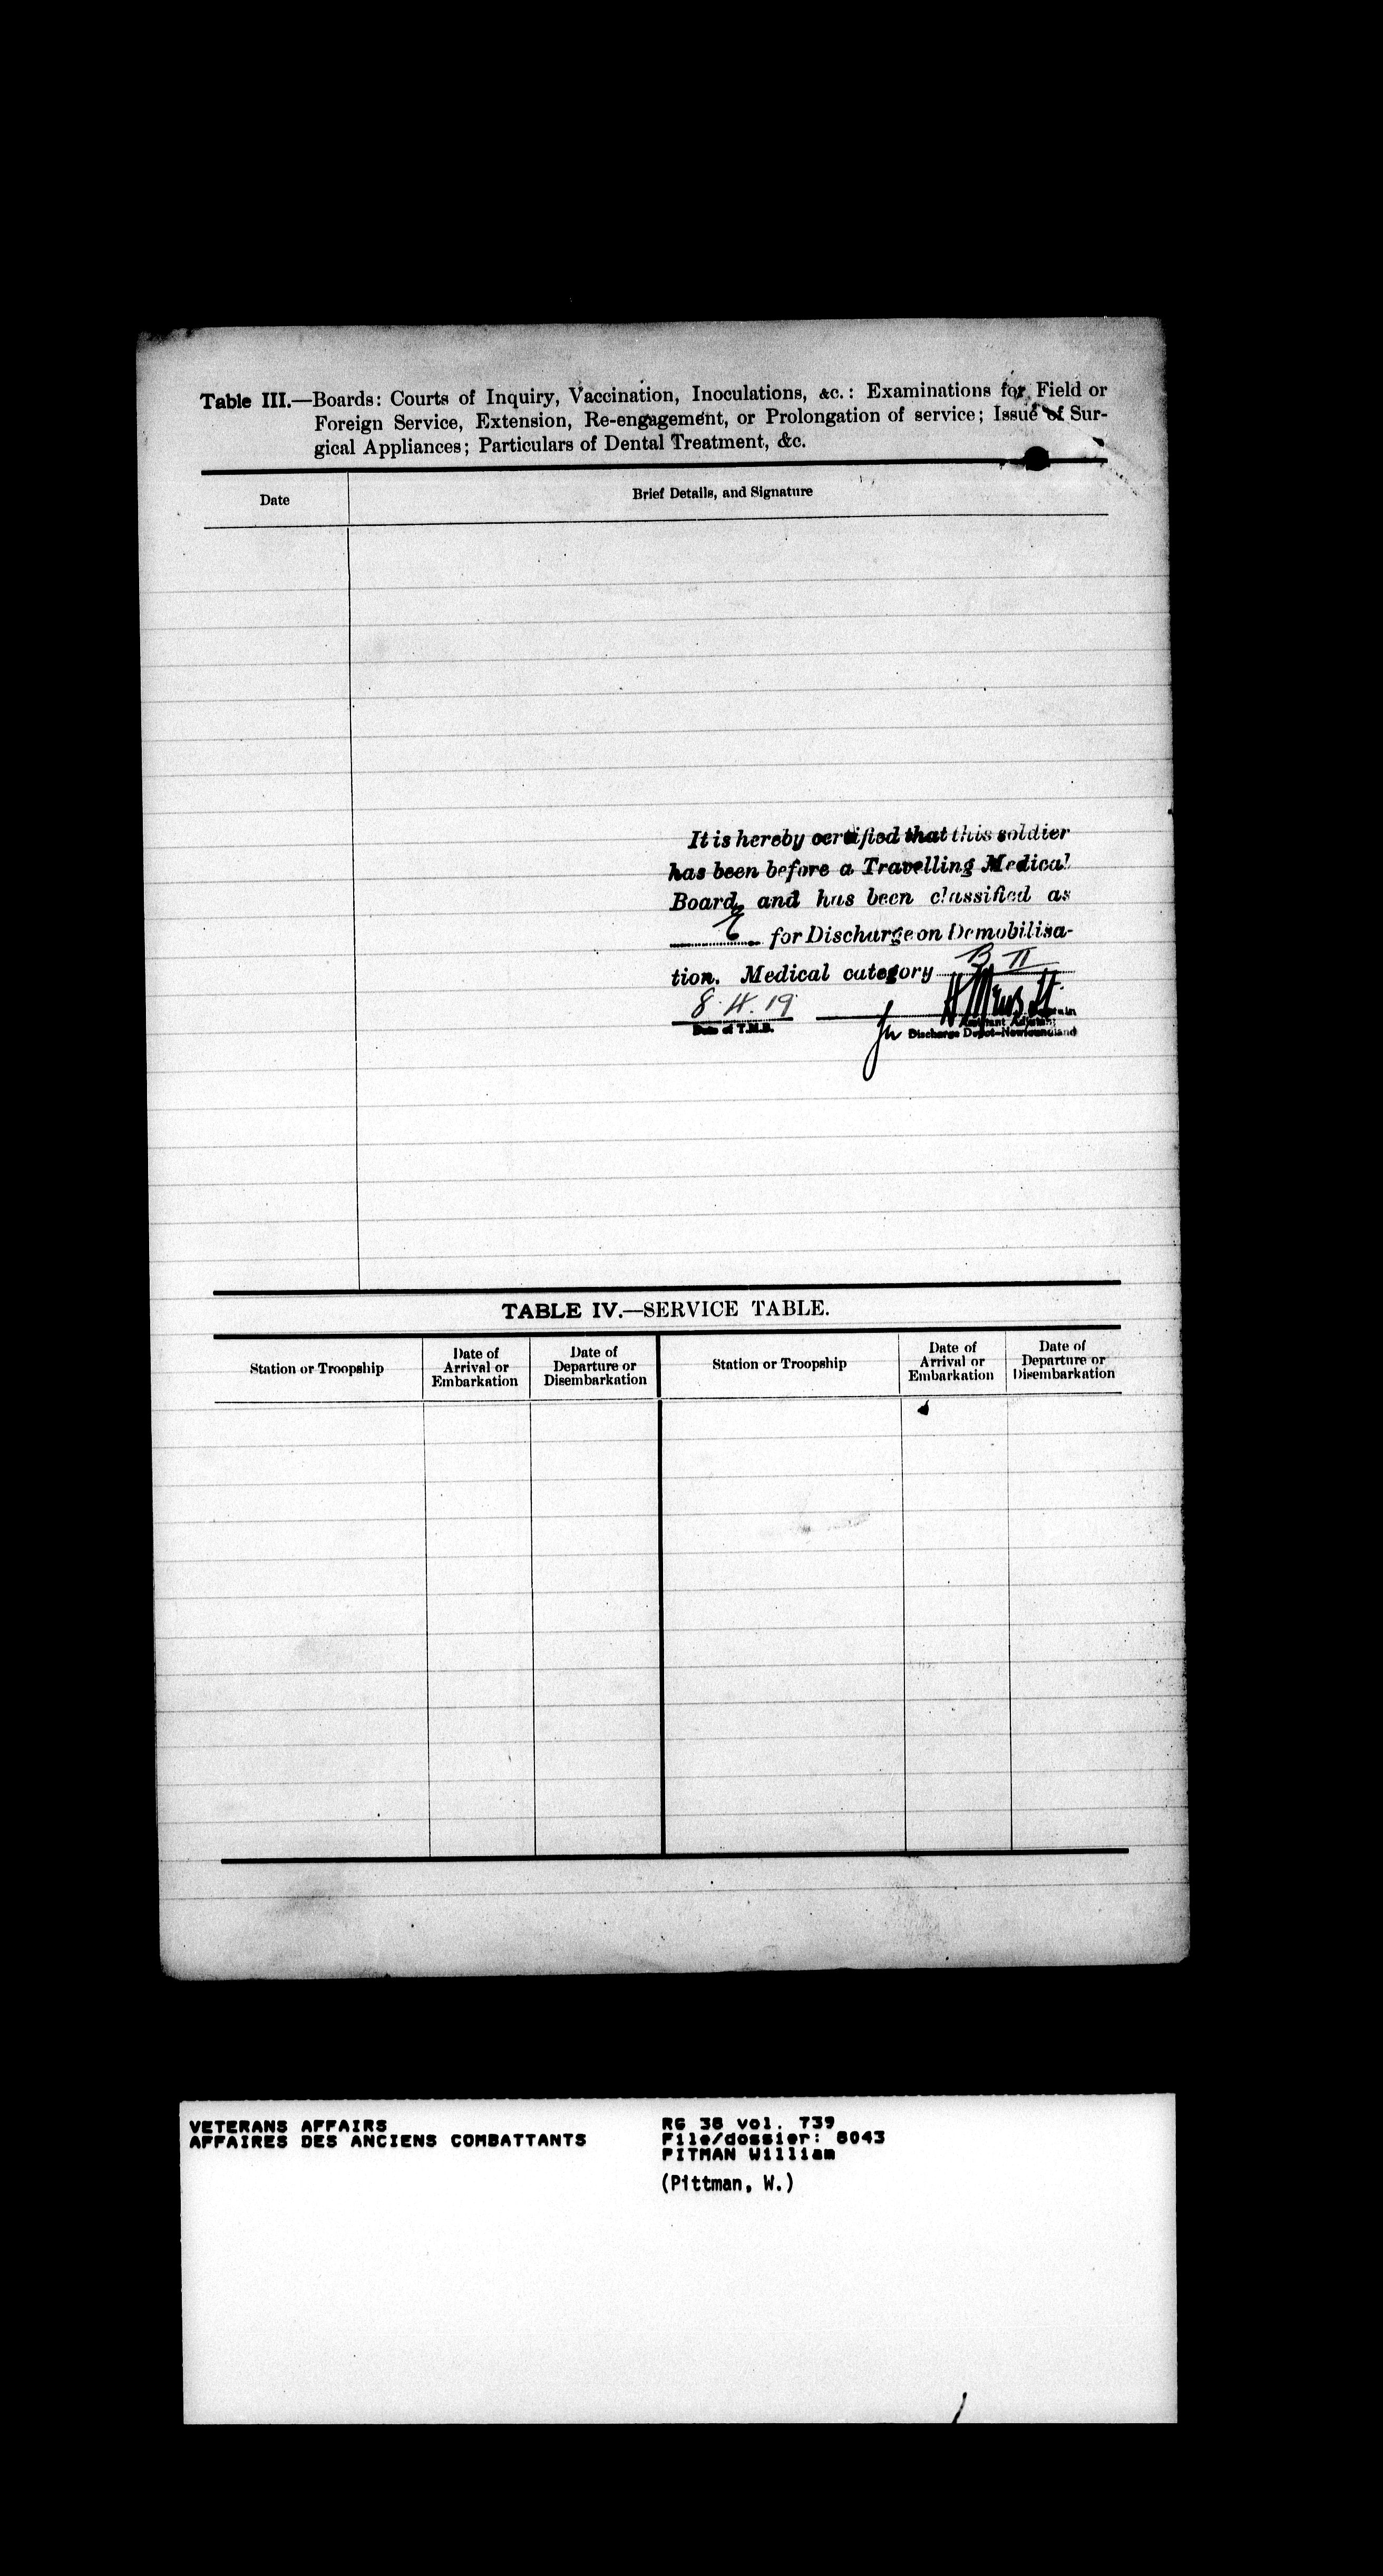 Table III.—Boards: Courts of Inquiry, Vaccination, Inoculations, &c.: Examinations for Field or
Foreign Service, Extension, Re-engagement, or Prolongation of service; Issue of Sur-
gical Appliances; Particulars of Dental Treatment, &c.
Date
Brief Details, and Signature
It is hereby certified that this soldier
has been before a Travelling Medical
Board, and has been classified as
for Discharge on Demobilisa-
tion. Medical category B II
8.4.19
Date of T.M.B.
Assistant Adjutant
Discharge Depot—Newfoundland
TABLE IV.—SERVICE TABLE.
Station or Troopship
Date of
Arrival or
Embarkation
Date of
Departure or
Disembarkation
Station or Troopship
Date of
Arrival or
Embarkation
Date of
Departure or
Disembarkation
VETERANS AFFAIRS
AFFAIRES DES ANCIENS COMBATTANTS
RG 38 vol. 739
File/dossier: 8043
PITMAN William
(Pittman, W.)